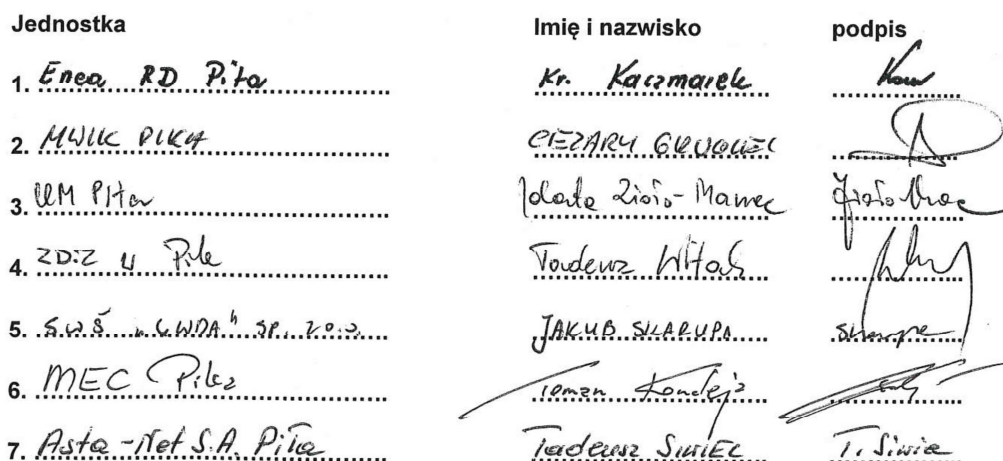 Jednostka Imię i nazwisko podpis
1. Enea RD Piła Kr. Kaczmarek
2. MWIK PIŁA CEZARY
3. UM Piła Jolanta Zioło-
4. ZDiZ w Pile Tadeusz Witos
5. SWŚ "GWDA" SP. z o.o. JAKUB SKARUPA Skarupa
6. MEC Piła Roman
7. Asta-Net S.A. Piła Tadeusz SIWIEC T. Siwie